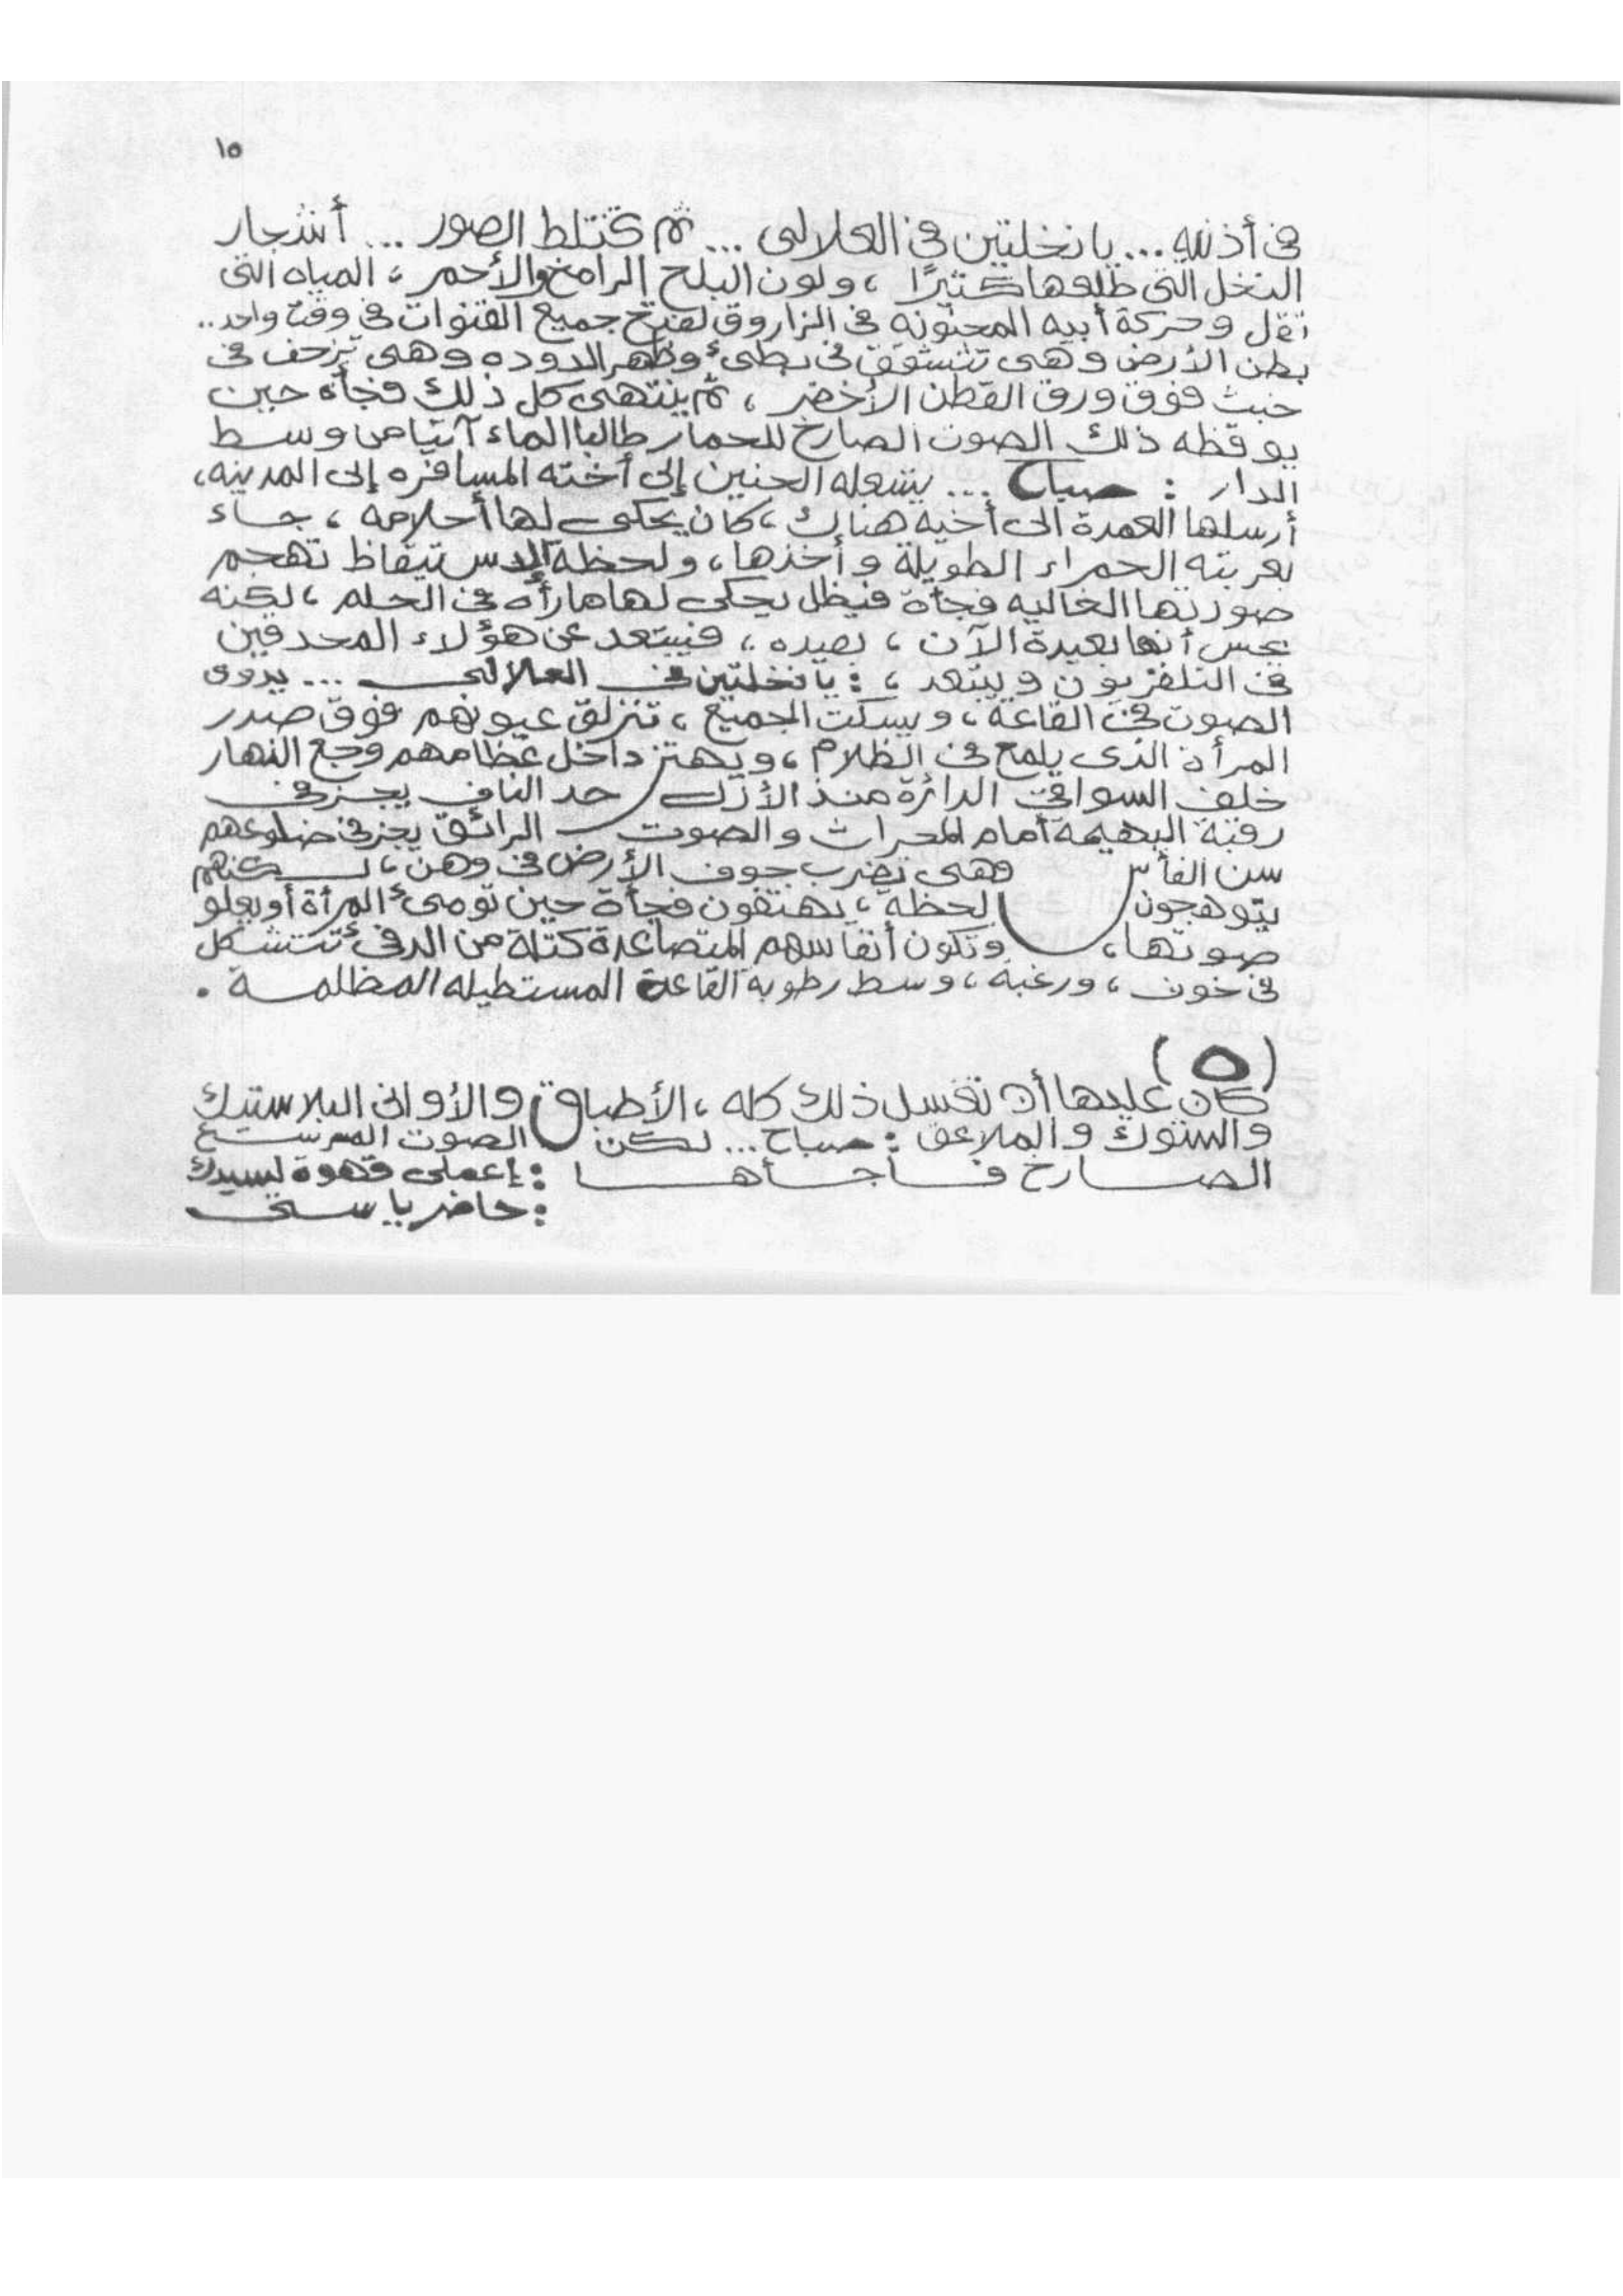 ١٥
فى أذنيه ... يا نخلتين فى العلالى ... ثم تختلط الصور ... أشجار
النخل التى طلعها كثيرًا ، ولون البلح الرامخ والأحمر ، المياه التى
تقل وحركة أبيه المجنونه فى الزاروق لفتح جميع القنوات فى وقت واحد ..
بطن الأرض وهى تتشقق فى بطئ وظهر الدوده وهى تزحف فى
خبث فوق ورق القطن الأخضر ، ثم ينتهى كل ذلك فجأة حين
يوقظه ذلك الصوت الصارخ للحمار طالبا الماء آتيا من وسط
الدار : صباح ... يشعله الحنين إلى أخته المسافره إلى المدينه ،
أرسلها العمدة الى أخيه هناك ، كان يحكى لها أحلامه ، جاء
بعربته الحمراء الطويلة وأخذها ، ولحظة الاستيقاظ تهجم
صورتها الغاليه فجأة فيظل يحكى لها ما رأه فى الحلم ، لكنه
يحس أنها بعيدة الآن ، بعيده ، فيبتعد عن هؤلاء المحدقين
فى التلفزيون ويبتعد ، : يا نخلتين فى العلالى ... يدوى
الصوت فى القاعة ، ويسكت الجميع ، تنزلق عيونهم فوق صدر
المرأة الذى يلمع فى الظلام ، ويهتز داخل عظامهم وجع النهار
خلف السواقى الدائرة منذ الأزل حد الناف يجز فى
رقبة البهيمة أمام المحراث والصوت الرائق يجز فى ضلوعهم
سن الفأس وهى تضرب جوف الأرض فى وهن ، لكنهم
يتوهجون لحظة ، يهتفون فجأة حين تومئ المرأة أو يعلو
صوتها ، وتكون أنفاسهم المتصاعدة كتلة من الدفئ تتشكل
فى خوف ، ورغبة ، وسط رطوبة القاعة المستطيله المظلمة .
(٥)
كان عليها أن تغسل ذلك كله ، الأطباق والأوانى البلاستيك
والشوك والملاعق : صباح ... لكن الصوت المسرسع
الصارخ فاجأها : إعملى قهوة لسيدك
: حاضر يا ستى